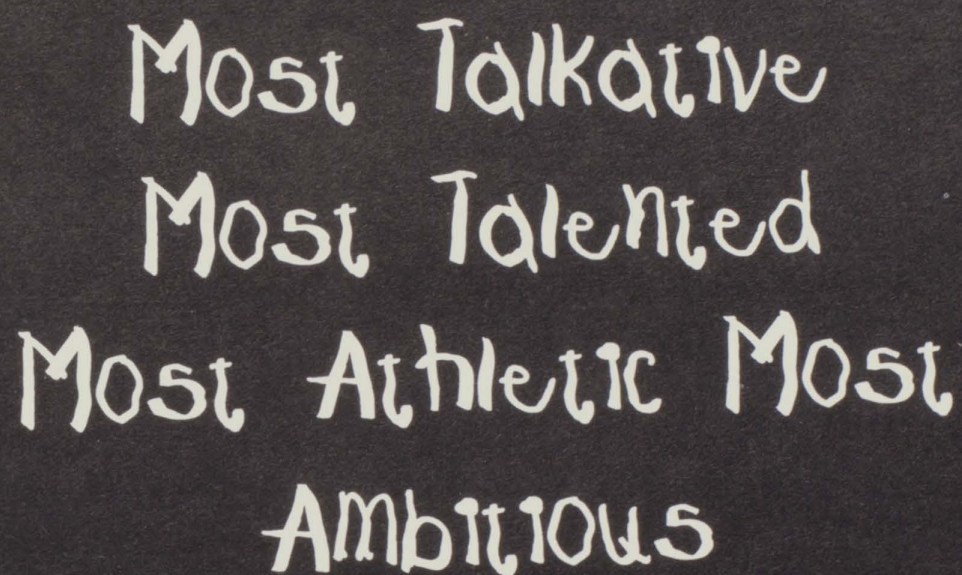 Most Talkative
Most Talented
Most Athletic Most
Ambitious